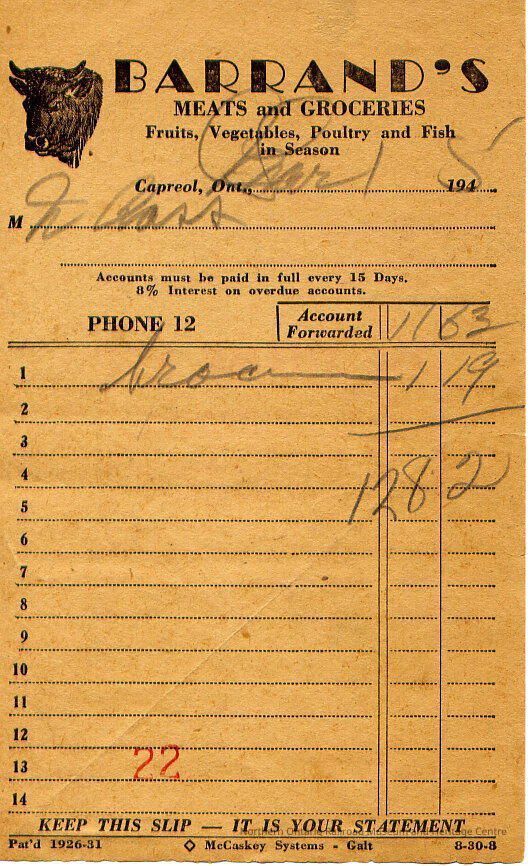 BARRAND'S
MEATS and GROCERIES
Fruits, Vegetables, Poultry and Fish
in Season
Capreol, Ont., 1 1945
M
Accounts must be paid in full every 15 Days.
8% Interest on overdue accounts.
PHONE 12 Account Forwarded 11 63
1 1 19
2
3
4 12 82
5
6
7
8
9
10
11
12
13 22
14
KEEP THIS SLIP — IT IS YOUR STATEMENT
Northern Ontario Railroad Museum and Heritage Centre
Pat'd 1926-31 ◇ McCaskey Systems - Galt 8-30-8